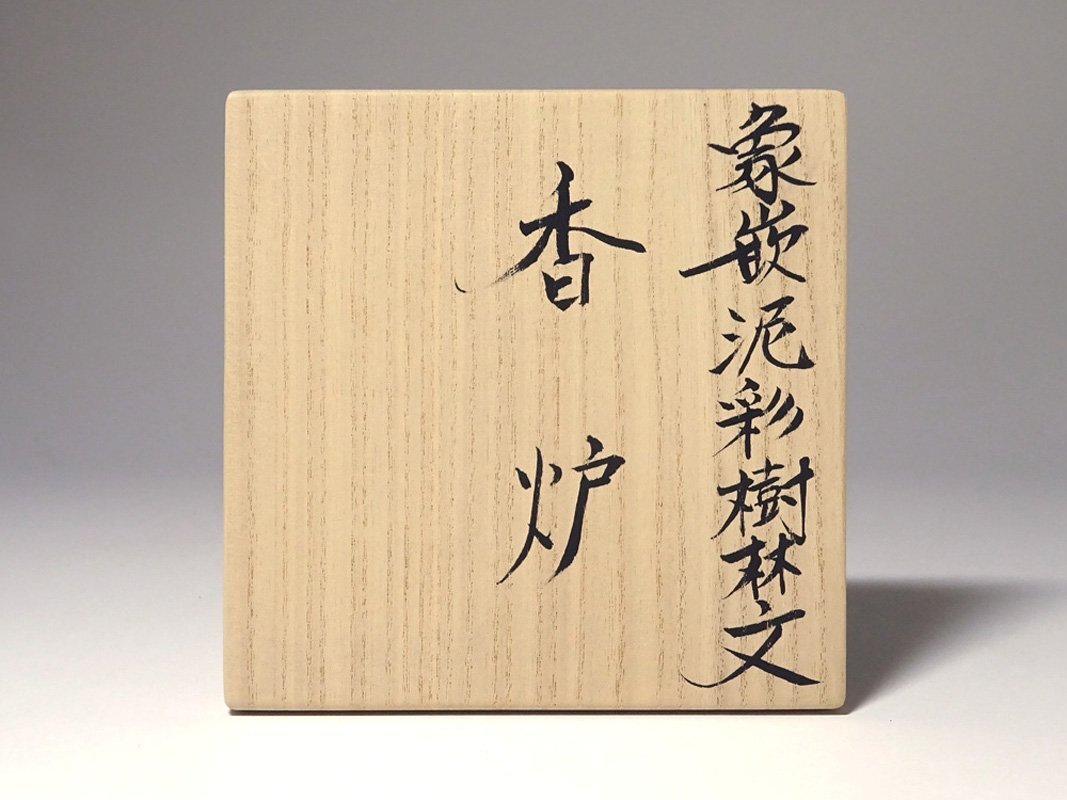 象嵌泥彩樹林文
香炉